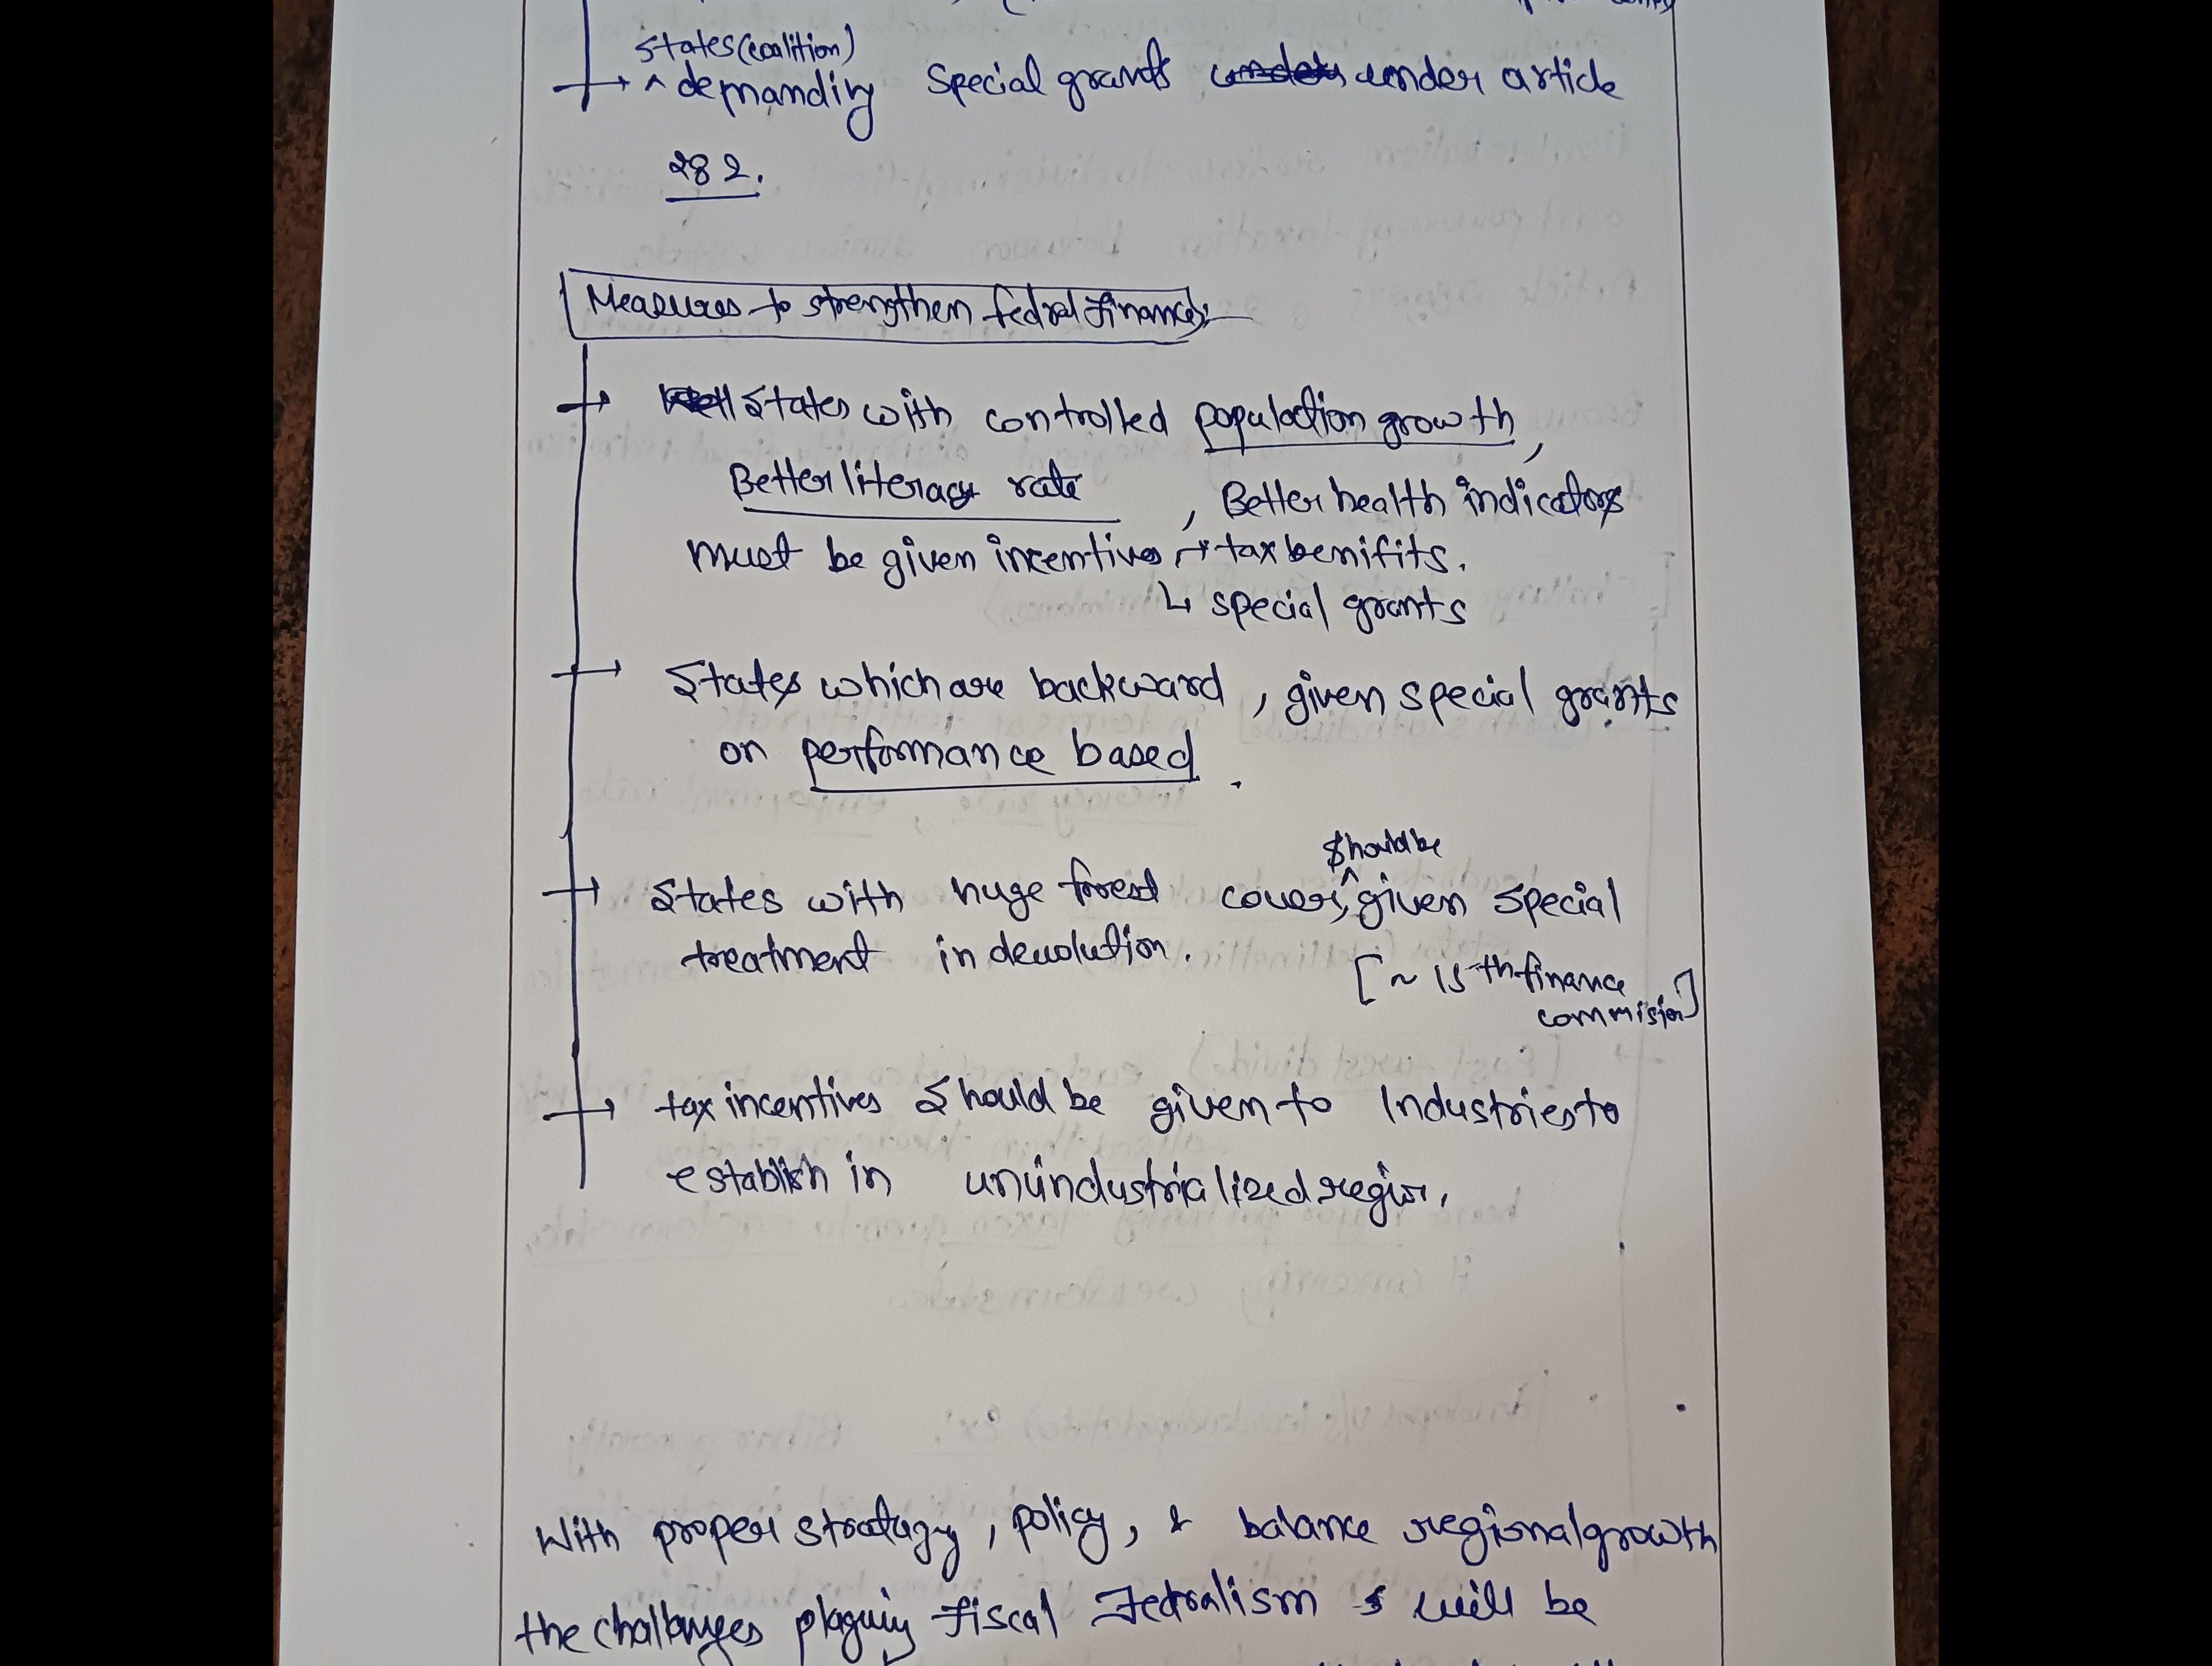 States (coalition)
^ demanding special grants under article
282.
Measures to strengthen fedral finances:
States with controlled population growth,
Better literacy rate, Better health indicators
must be given incentives → tax benifits.
↳ special grants
States which are backward, given special grants
on performance based.
should be
States with huge forest cover, ^ given special
treatment in devolution.
[~ 15th finance
commision]
tax incentives should be given to Industries to
establish in unindustrialized region.
With proper stratagy, policy, & balance regional growth
the challanges plaguing fiscal Fedralism will be